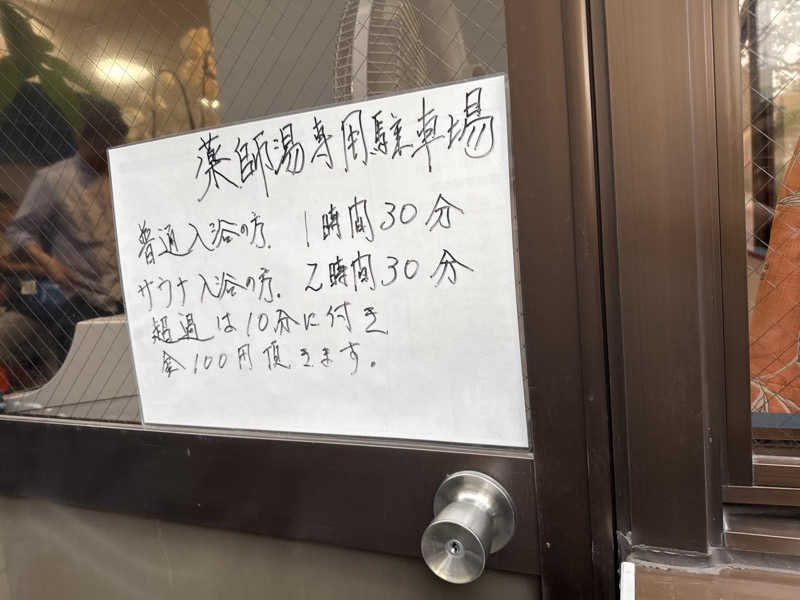 薬師湯専用駐車場
普通入浴の方. 1時間30分
サウナ入浴の方. 2時間30分
超過は10分に付き
金100円頂きます。